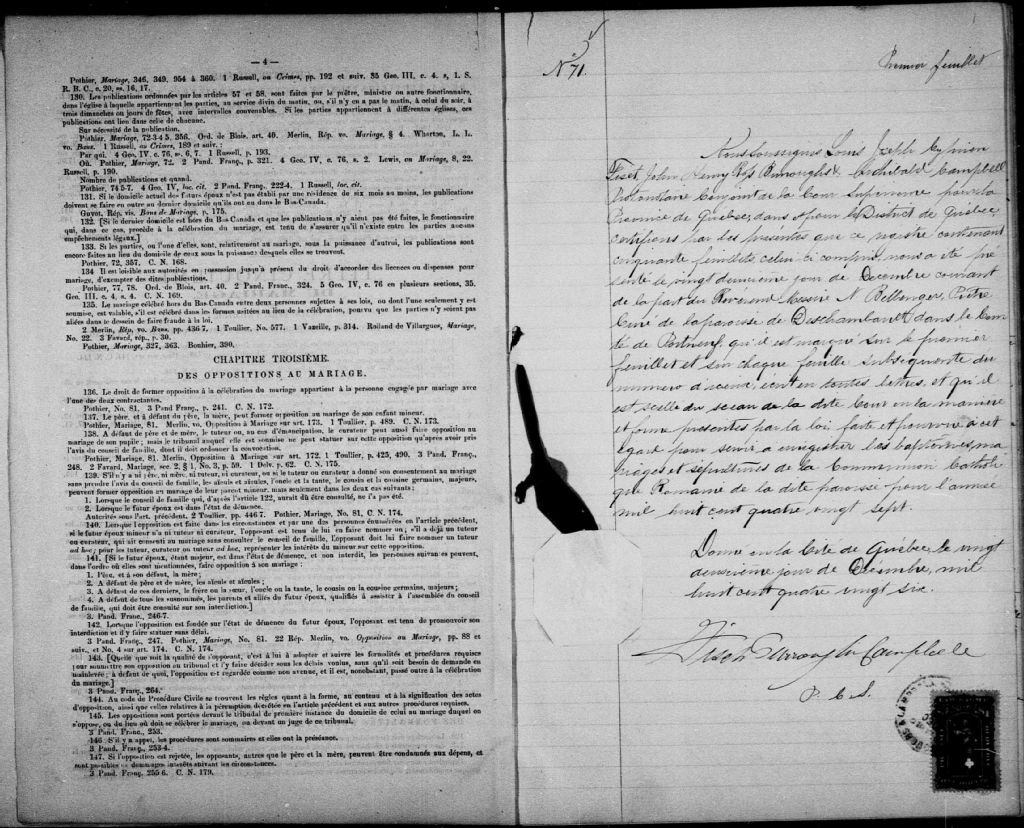 — 4 —
Pothier, Mariage, 346, 349, 954 à 360. 1 Russell, on Crimes, pp. 192 et suiv. 35 Geo. III, c. 4. s, 1. S.
R. B. C., c. 20, ss. 16, 17.
130. Les publications ordonnées par les articles 57 et 58, sont faites par le prêtre, ministre ou autre fonctionnaire,
dans l'église à laquelle appartiennent les parties, au service divin du matin, ou, s'il n'y en a pas le matin, à celui du soir, à
trois dimanches ou jours de fêtes, avec intervalles convenables. Si les parties appartiennent à différentes églises, ces
publications ont lieu dans celle de chacune.
Sur nécessité de la publication.
Pothier, Mariage, 72-3-4 5. 356. Ord. de Blois, art. 40. Merlin, Rép. vo. Mariage, § 4. Wharton, L. L.
vo. Bans. 1 Russell, on Crimes, 189 et suiv. :
Par qui. 4 Geo. IV, c. 76, s. 6, 7. 1 Russell, p. 193.
Où. Pothier, Mariage, 72. 2 Pand. Franç., p. 321. 4 Geo. IV, c. 76, s. 2. Lewis, on Mariage, 8, 22.
Russell, p. 190.
Nombre de publications et quand.
Pothier, 74 5-7. 4 Geo. IV, loc. cit. 2 Pand. Franç., 222-4. 1 Russell, loc. cit.
131. Si le domicile actuel des futurs époux n'est pas établi par une résidence de six mois au moins, les publications
doivent se faire en outre au dernier domicile qu'ils ont eu dans le Bas-Canada.
Guyot, Rép. vis. Bans de Mariage, p. 175.
132. [Si le dernier domicile est hors du Bas-Canada et que les publications n'y aient pas été faites, le fonctionnaire
qui, dans ce cas, procède à la célébration du mariage, est tenu de s'assurer qu'il n'existe entre les parties aucuns
empêchements légaux.]
133. Si les parties, ou l'une d'elles, sont, relativement au mariage, sous la puissance d'autrui, les publications sont
encore faites au lieu du domicile de ceux sous la puissance desquels elles se trouvent.
Pothier, 72, 357. C. N. 168.
134 Il est loisible aux autorités en possession jusqu'à présent du droit d'accorder des licences ou dispenses pour
mariage, d'exempter des dites publications.
Pothier, 77, 78. Ord. de Blois, art. 40. 2 Pand. Franç., 324. 5 Geo. IV, c. 76 en plusieurs sections, 35.
Geo. III, c. 4, s. 4. C. N. 169.
135. Le mariage célébré hors du Bas-Canada entre deux personnes sujettes à ses lois, ou dont l'une seulement y est
soumise, est valable, s'il est célébré dans les formes usitées au lieu de la célébration, pourvu que les parties n'y soient pas
allées dans le dessein de faire fraude à la loi.
2 Merlin, Rép, vo. Bans, pp. 436 7. 1 Toullier, No. 577. 1 Vazeille, p. 314. Rolland de Villargues, Mariage,
No. 22. 3 Favard, rép., p. 30.
Pothier, Mariage, 327, 363. Bouhier, 390.
CHAPITRE TROISIÈME.
DES OPPOSITIONS AU MARIAGE.
136. Le droit de former opposition à la célébration du mariage appartient à la personne engagée par mariage avec
l'une des deux contractantes.
Pothier, No. 81. 3 Pand Franç., p. 241. C. N. 172.
137. Le père, et à défaut du père, la mère, peut former opposition au mariage de son enfant mineur.
Pothier, Mariage, 81. Merlin, vo. Opposition à Mariage sur art. 173. 1 Toullier, p. 489. C. N. 173.
138. A défaut de père et de mère, le tuteur ou, au cas d'émancipation, le curateur peut aussi faire opposition au
mariage de son pupile ; mais le tribunal auquel elle est soumise ne peut statuer sur cette opposition qu'après avoir pris
l'avis du conseil de famille, dont il doit ordonner la convocation.
Pothier, Mariage, 81. Merlin, Opposition à Mariage sur art. 172. 1 Toullier, p. 425, 490. 3 Pand. Franç.,
248. 2 Favard, Mariage, sec. 2, § 1, No. 3, p. 59. 1 Delv. p. 62. C. N. 175.
139. S'il n'y a ni père, ni mère, ni tuteur, ni curateur, ou si le tuteur ou curateur a donné son consentement au mariage
sans prendre l'avis du conseil de famille, les aïeuls et aïeules, l'oncle et la tante, le cousin et la cousine germains, majeurs,
peuvent former opposition au mariage de leur parent mineur, mais seulement dans les deux cas suivants :
1. Lorsque le conseil de famille qui, d'après l'article 122, aurait dû être consulté, ne l'a pas été.
2. Lorsque le futur époux est dans l'état de démence.
Autorités sous l'art. précédent. 2 Toullier, pp. 446 7. Pothier, Mariage, No. 81, C. N. 174.
140. Lorsque l'opposition est faite dans les circonstances et par une des personnes énumérées en l'article précédent,
si le futur époux mineur n'a ni tuteur ni curateur, l'opposant est tenu de lui en faire nommer un ; s'il a déjà un tuteur
ou curateur, qui ait consenti au mariage sans consulter le conseil de famille, l'opposant doit lui faire nommer un tuteur
ad hoc ; pour les tuteur, curateur ou tuteur ad hoc, représenter les intérêts du mineur sur cette opposition.
141. [Si le futur époux, étant majeur, est dans l'état de démence, et non interdit, les personnes suivantes peuvent,
dans l'ordre où elles sont mentionnées, faire opposition à son mariage :
1. Père, et à son défaut, la mère ;
2. A défaut de père et de mère, les aïeuls et aïeules ;
3. A défaut de ces derniers, le frère ou la sœur, l'oncle ou la tante, le cousin ou la cousine germains, majeurs ;
4. A défaut de tous les susnommés, les parents et alliés du futur époux, qualifiés à assister à l'assemblée du conseil
de famille, qui doit être consulté sur son interdiction.]
3 Pand. Franç., 246-7.
142. Lorsque l'opposition est fondée sur l'état de démence du futur époux, l'opposant est tenu de promouvoir son
interdiction et d'y faire statuer sans délai.
3 Pand. Franç., 247. Pothier, Mariage, No. 81. 22 Rép. Merlin, vo. Opposition au Mariage, pp. 88 et
suiv., et No. 4 sur art. 174. C. N. 174.
143. [Quelle que soit la qualité de l'opposant, c'est à lui à adopter et suivre les formalités et procédures requises
pour soumettre son opposition au tribunal et l'y faire décider sous les délais voulus, sans qu'il soit besoin de demande en
mainlevée ; à défaut de quoi, l'opposition est regardée comme non avenue, et il est, nonobstant, passé outre à la célébration
du mariage.]
3 Pand. Franç., 264.
144. Au code de Procédure Civile se trouvent les règles quant à la forme, au contenu et à la signification des actes
d'opposition, ainsi que celles relatives à la péremption décrétée en l'article précédent et aux autres procédures requises.
145. Les oppositions sont portées devant le tribunal de première instance du domicile de celui au mariage duquel on
s'oppose, ou du lieu où doit se célébrer le mariage, ou devant un juge de ce tribunal.
3 Pand. Franç., 253.
146 S'il y a appel, les procédures sont sommaires et elles ont la préséance.
3 Pand. Franç., 253-4.
147. Si l'opposition est rejetée, les opposants, autres que le père et la mère, peuvent être condamnés aux dépens, et
sont passibles de dommages intérêts suivant les circonstances.
3 Pand. Franç. 255 6. C. N. 179.
No 71.
Premier feuillet
Nous soussignés Louis Joseph Cyprien
Fiset, John Henry Ross Burroughs & Archibald Campbell
Protonotaire Conjoint de la Cour Supérieure pour la
Province de Québec, dans & pour le District de Québec,
certifions par les présentes que ce registre contenant
cinquante feuillets celui-ci compris, nous a été pré
senté le vingt deuxième jour de Décembre courant
de la part du Révérend Messire N Bellenger, Prêtre
Curé de la paroisse de Deschambault dans le Com
té de Portneuf, qu'il est marqué sur le premier
feuillet et sur chaque feuille subséquente du
numéro d'icelui, écrit en toutes lettres, et qu'il
est scellé du sceau de la dite Cour en la manière
et forme présentes par la loi faite et pourvue à cet
égard pour servir à enregistrer les baptêmes, ma
riages et sépultures de la Communion Catholi
que Romaine de la dite paroisse pour l'année
mil huit cent quatre vingt sept.
Donné en la Cité de Québec, le vingt
deuxième jour de Décembre, mil
huit cent quatre vingt six.
Fiset Burroughs Campbell
P. C. S.